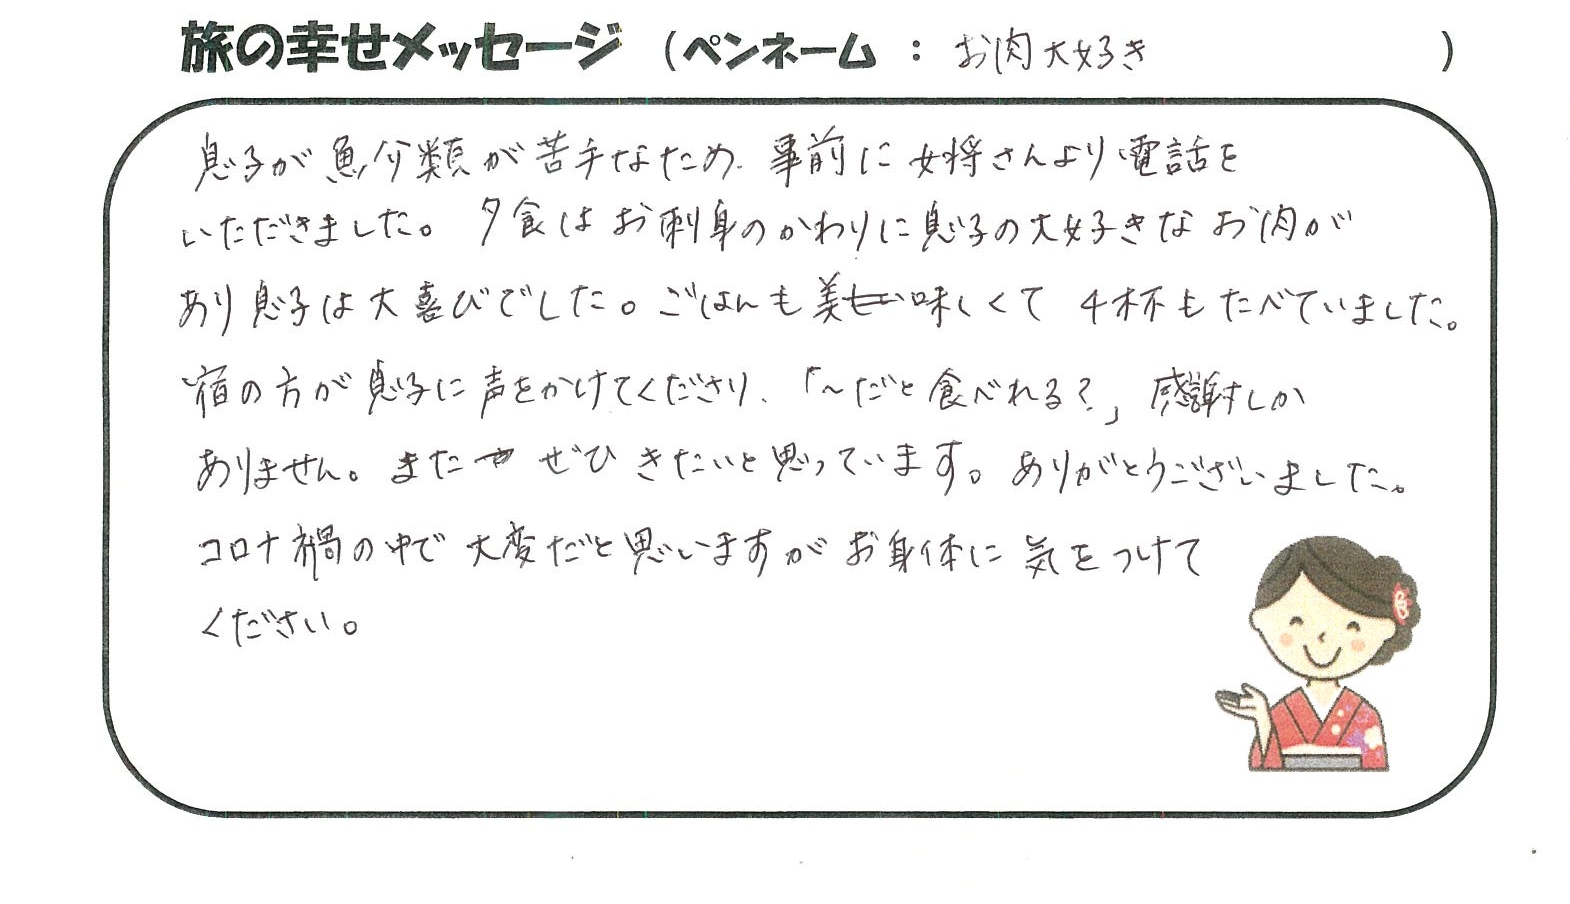 旅の幸せメッセージ (ペンネーム : お肉大好き )
息子が魚介類が苦手なため、事前に女将さんより電話を
いただきました。夕食はお刺身のかわりに息子の大好きなお肉が
あり息子は大喜びでした。ごはんも美味しくて 4杯もたべていました。
宿の方が息子に声をかけてくださり、「~だと食べれる?」感謝しか
ありません。また ぜひ きたいと思っています。ありがとうございました。
コロナ禍の中で 大変だと思いますが お身体に 気をつけて
ください。